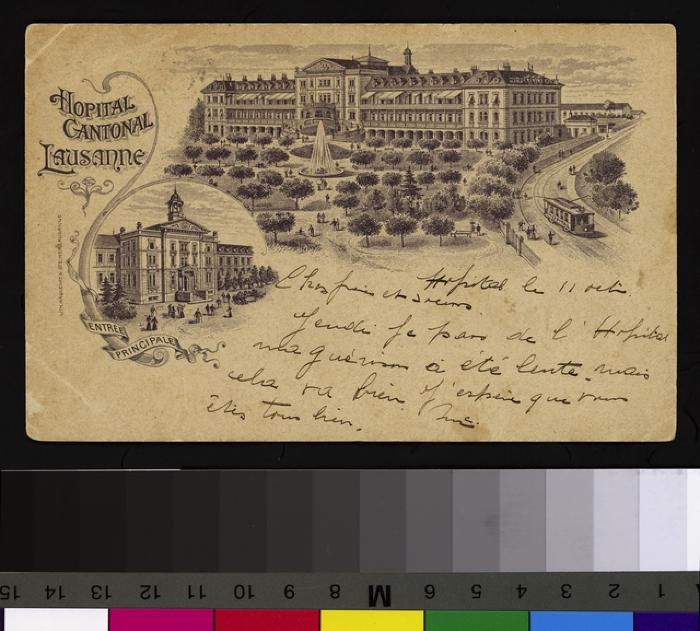 HOPITAL
CANTONAL
LAUSANNE
ENTRÉE
PRINCIPALE
Hopital le 11 oct.
Chers frères et soeurs
Jeudi je pars de l'Hopital
ma guérison a été lente, mais
cela va bien J'espère que vous
êtes tous bien.
15 14 13 12 11 10 9 8 M 6 5 4 3 2 1